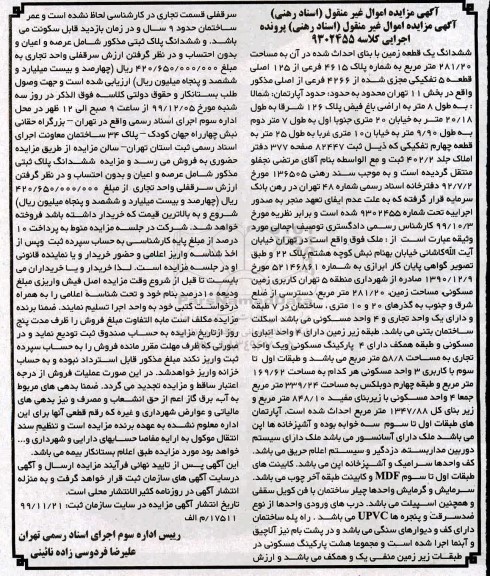 آگهی مزایده اموال غیر منقول (اسناد رهنی)
آگهی مزایده اموال غیر منقول (اسناد رهنی) پرونده
اجرایی کلاسه ۹۳۰۲۴۵۵
ششدانگ یک قطعه زمین با بنای احداث شده در آن به مساحت
۲۸۱/۲۰ متر مربع به شماره پلاک ۴۶۱۵ فرعی از ۱۲۵ اصلی
قطعه ۵ تفکیکی مجزی شده از ۴۲۶۶ فرعی از اصلی مذکور
واقع در بخش ۱۱ تهران محدود به حدود: حدود آپارتمان: شمالا
: به طول ۸ متر به اراضی باغ فیض پلاک ۱۲۶ شرقا به طول
۲۰/۱۸ متر به خیابان ۲۰ متری جنوبا اول به طول ۷ متر دوم
به طول ۹/۹۰ متر به خیابان ۱۰ متری غربا به طول ۲۵ متر به
قطعه چهارم تفکیکی که ذیل ثبت ۸۲۴۴۷ صفحه ۳۷۷ دفتر
املاک جلد ۴۰۲/۲ ثبت و مع الواسطه بنام آقای مرتضی نجفلو
منتقل گردیده است و به موجب سند رهنی ۱۳۶۵۰۵ مورخ
۹۲/۷/۲ دفترخانه اسناد رسمی شماره ۴۸ تهران در رهن بانک
سرمایه قرار گرفته که به علت عدم ایفای تعهد منجر به صدور
اجراییه تحت شماره ۹۳۰۲۴۵۵ شده است و برابر نظریه مورخ
۹۹/۱۰/۳ کارشناس رسمی دادگستری توصیف اجمالی مورد
وثیقه عبارت است از : ملک فوق واقع است در تهران خیابان
آیت الله کاشانی خیابان بهنام نبش کوچه هشتم پلاک ۲۲ و طبق
تصویر گواهی پایان کار ابرازی به شماره ۵۲۱۴۶۸۶۱ مورخ
۱۳۹۰/۱۲/۹ صادره از شهرداری منطقه ۵ تهران کاربری زمین
مسکونی، مساحت زمین، ۲۸۱/۲۰ متر مربع، دسترسی از ضلع
شرق و جنوب به گذرهای ۲۰ و ۱۰ متری . ساختمان در ۷ طبقه
و دارای یک واحد تجاری و ۴ واحد مسکونی می باشد اسکلت
ساختمان بتنی می باشد. طبقه زیر زمین دارای ۴ واحد انباری
مسکونی و طبقه همکف دارای ۴ پارکینگ مسکونی ویک واحد
تجاری به مساحت ۵۸/۸ متر مربع می باشد و طبقات اول تا
سوم با کاربری ۳ واحد مسکونی هر کدام به مساحت ۱۶۹/۶۲
متر مربع و طبقه چهارم دوبلکس به مساحت ۳۳۹/۲۴ متر مربع
جمعا ۴ واحد مسکونی با زیربنای مفید ۸۴۸/۱۰ متر مربع و
زیر بنای کل ۱۳۴۷/۸۸ متر مربع احداث شده است. آپارتمان
های طبقات اول تا سوم سه خوابه بوده و آشپزخانه ها اپن
می باشد ملک دارای آسانسور می باشد ملک دارای سیستم
دوربین مداربسته، دزدگیر و سیستم اعلام حریق می باشد.
کف واحدها سرامیک و آشپزخانه اپن می باشد. کابینت های
طبقات اول تا سوم MDF و کابینت طبقه آخر چوب می باشد.
سرمایش و گرمایش واحدها چیلر ساختمان با فن کویل سقفی
و همچنین اسپیلت می باشد. درب های ورودی واحدها از نوع
ضدسرقت و پنجره ها UPVC می باشد . راه پله ساختمان
دارای کف و دیوارهای سنگی می باشد و در پشت بام نیز آلاچیق
و آبنما اجرا شده است و مجموعا هشت پارکینگ مسکونی در
طبقات زیر زمین منفی یک و همکف می باشد و ارزش
سرقفلی قسمت تجاری در کارشناسی لحاظ نشده است و عمر
ساختمان حدود ۹ سال و در زمان بازدید قابل سکونت می
باشد. و ششدانگ پلاک ثبتی مذکور شامل عرصه و اعیان و
بدون احتساب و در نظر گرفتن ارزش سرقفلی واحد تجاری به
مبلغ ۴۲۰/۶۵۰/۰۰۰/۰۰۰ ریال (چهارصد و بیست میلیارد و
ششصد و پنجاه میلیون ریال) ارزیابی شده است و جهت وصول
طلب بستانکار و حقوق دولتی کلاسه فوق الذکر در روز سه
شنبه مورخ ۹۹/۱۲/۰۵ از ساعت ۹ صبح الی ۱۲ ظهر در محل
اداره سوم اجرای اسناد رسمی واقع در تهران - بزرگراه حقانی
نبش چهارراه جهان کودک - پلاک ۳۴ ساختمان معاونت اجرای
اسناد رسمی ثبت استان تهران- سالن مزایده از طریق مزایده
حضوری به فروش می رسد و مزایده ششدانگ پلاک ثبتی
مذکور شامل عرصه و اعیان و بدون احتساب و در نظر گرفتن
ارزش سرقفلی واحد تجاری از مبلغ ۴۲۰/۶۵۰/۰۰۰/۰۰۰
ریال (چهارصد و بیست میلیارد و ششصد و پنجاه میلیون ریال)
شروع و به بالاترین قیمت که خریدار داشته باشد فروخته
خواهد شد. شرکت در جلسه مزایده منوط به پرداخت ۱۰
درصد از مبلغ پایه کارشناسی به حساب سپرده ثبت پس از
اخذ شناسه واریز اعلامی و حضور خریدار و یا نماینده قانونی
او در جلسه مزایده است. لذا خریدار و یا خریداران می
بایست تا قبل از شروع وقت مزایده اصل فیش واریزی مبلغ
ودیعه ۱۰ درصد بنام خود و تحت شناسه اعلامی را به همراه
درخواست کتبی خود به واحد اجرا تسلیم نمایند. ضمنا برنده
مزایده مکلف است مابه التفاوت مبلغ فروش را ظرف مدت پنج
روز از تاریخ مزایده به حساب صندوق ثبت تودیع نماید و در
صورتی که ظرف مهلت مقرر مانده فروش را به حساب سپرده
ثبت واریز نکند مبلغ مذکور قابل استرداد نبوده و به حساب
خزانه واریز خواهدشد. در این صورت عملیات فروش از درجه
اعتبار ساقط و مزایده تجدید می گردد. ضمنا بدهی های مربوط
به آب، برق گاز اعم از حق انشعاب و مصرف و نیز بدهی های
مالیاتی و عوارض شهرداری و غیره که رقم قطعی آنها برای این
اداره معلوم نشده به عهده برنده مزایده است و تنظیم سند
انتقال موکول به ارایه مفاصا حسابهای دارایی و شهرداری و...
خواهد بود مورد مزایده طبق اعلام بستانکار بیمه می باشد.
این آگهی پس از تایید نهائی فرآیند مزایده ارسال و آگهی
درسایت آگهی های سازمان ثبت قرار خواهد گرفت و به منزله
انتشار آگهی در روزنامه کثیرالانتشار محلی است.
تاریخ انتشار آگهی مزایده در سایت سازمان ثبت: ۹۹/۱۱/۲۱
۱۷۵۱۱/م الف
رییس اداره سوم اجرای اسناد رسمی تهران
علیرضا فردوسی زاده نائینی